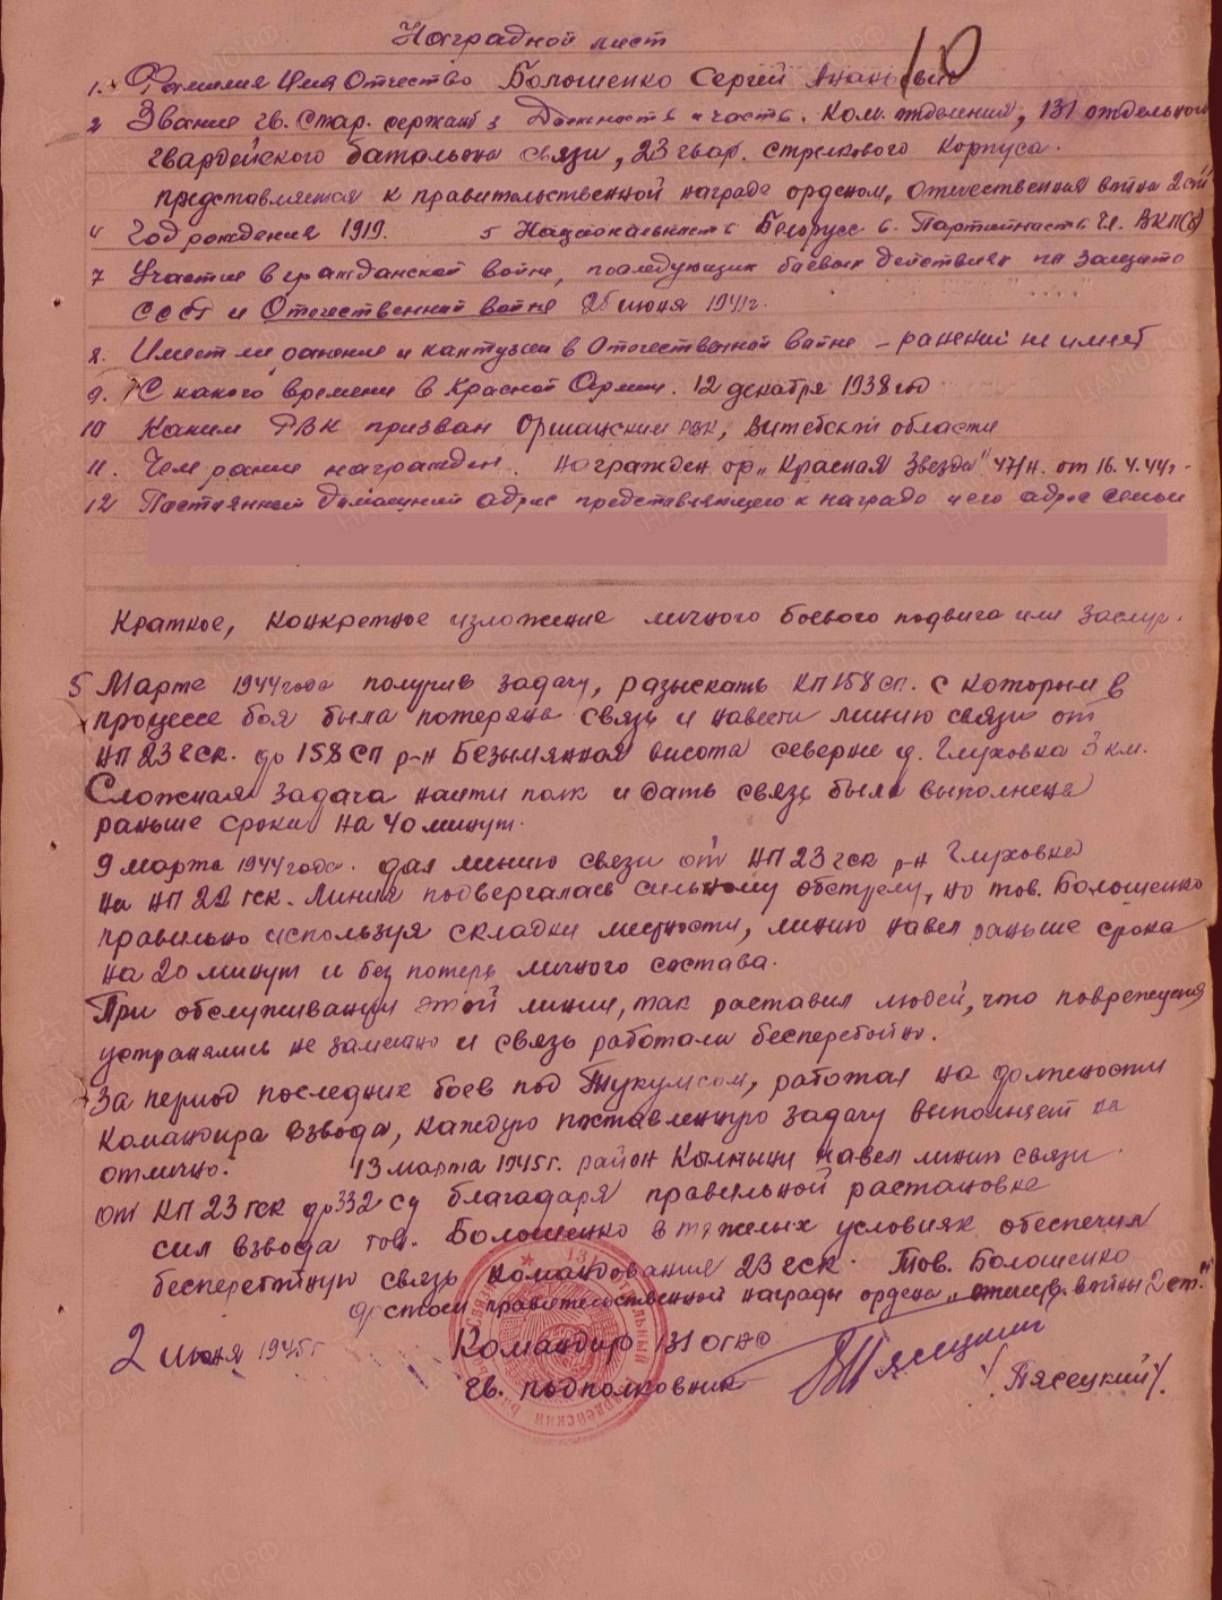 10
Наградной лист
1. Фамилия Имя Отчество Болошенко Сергей Ананьевич
2 Звание гв. Стар. сержант 3 Должность и часть. Ком. отделения, 131 отдельного
гвардейского батальона связи, 23 гвар. стрелкового корпуса.
представляется к правительственной награде орденом, Отечественная война 2 ст"
4 Год рождения 1919. 5 Национальность Белорусс 6. Партийность Чл. ВКП(б)
7 Участие в гражданской войне, последующих боевых действиях по защите
СССР и Отечественной войне 1941г.
8. Имеет ли ранение и контузии в Отечественной войне - ранений не имеет
9. С какого времени в Красной Армии. 12 декабря 1938 год
10 Каким РВК призван Оршанским РВК, Витебской области
11. Чем ранее награжден. Награжден ор„ Красная Звезда" 47/н. от 16.4.44г.
12 Постоянный домашний адрес представляемого к награде и его адрес семьи
Краткое, конкретное изложение личного боевого подвига или заслуг.
5 Марта 1944 года получив задачу, разыскать КП 158 сп. с которым в
процессе боя была потеряна связь и навести линию связи от
НП 23 гск. до 158 СП р-н Безымянная высота севернее д. Глуховка 3 км.
Сложная задача найти полк и дать связь была выполнена
раньше срока на 40 минут.
9 марта 1944 года. дал линию связи от НП 23 гск р-н Глуховка
на НП 22 гск. Линия подвергалась сильному обстрелу, но тов. Болошенко
правильно используя складки местности, линию навел раньше срока
на 20 минут и без потерь личного состава.
При обслуживании этой линии, так раставил людей, что повреждения
устранялись не заметно и связь работала бесперебойно.
За период последних боев под Тукумсом, работая на должности
командира взвода, каждую поставленную задачу выполняет на
отлично. 13 марта 1945г. район навел линию связи
от КП 23 гск до 332 сд благодаря правильной растановке
сил взвода тов. Болошенко в тяжелых условиях обеспечил
связь командования 23 гск. Тов. Болошенко
достоин правительственной награды ордена „Отечеств. войны 2 ст."
2 июня 1945г Командир 131 ОГБС
гв. подполковник Пясецкий /Пясецкий/.